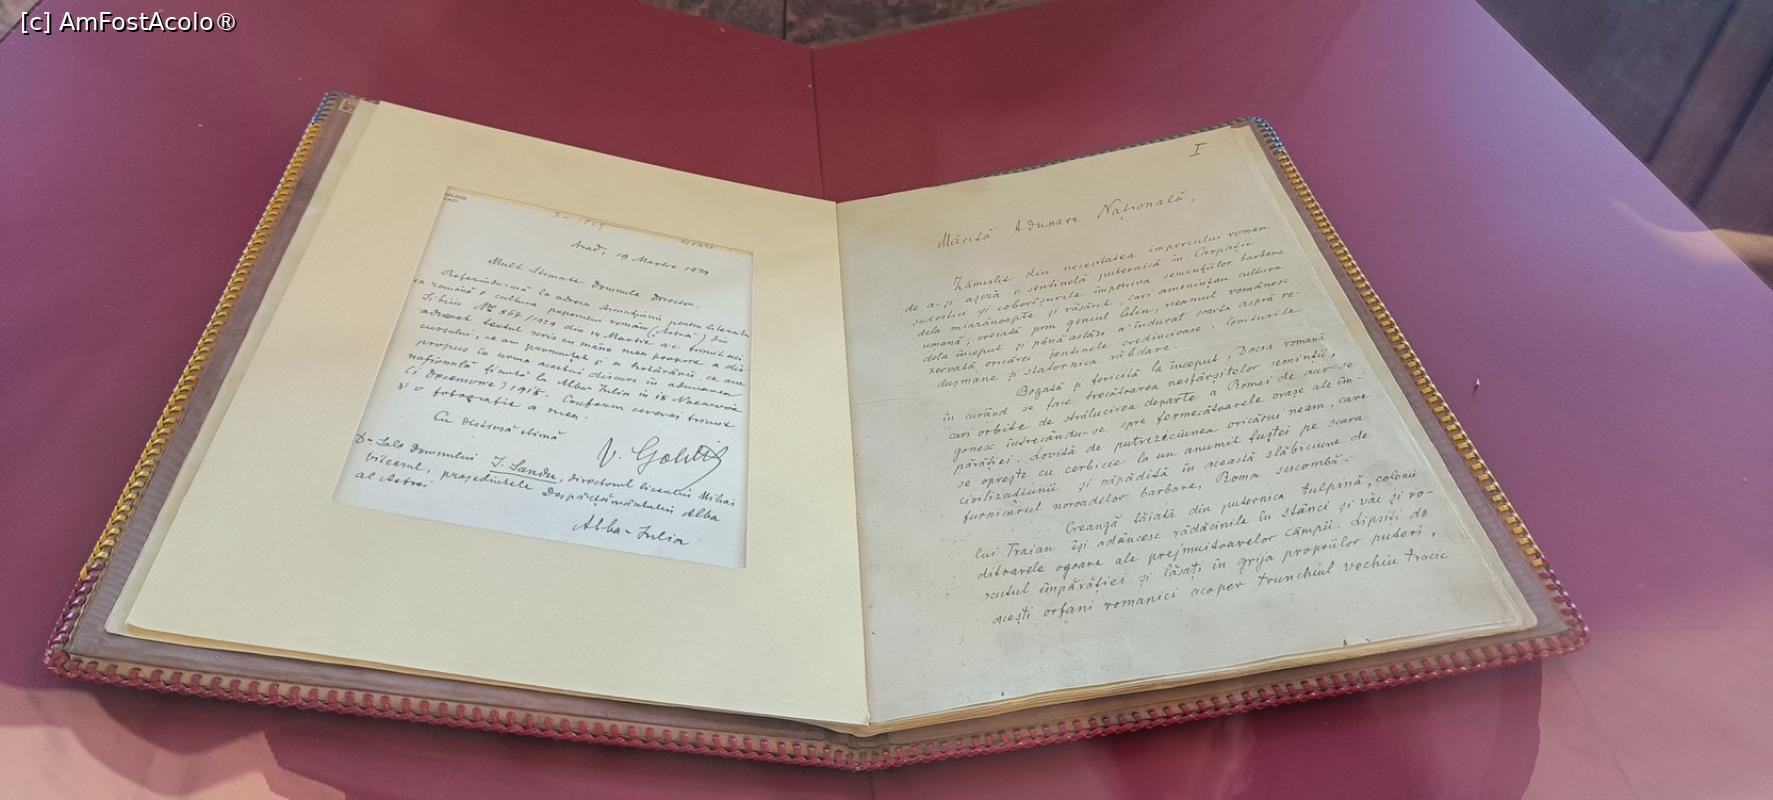 [c] AmFostAcolo®
Arad, 19 Martie 1929
Mult Stimate Domnule Director.
Referindu-mă la adresa Asociațiunii pentru literatura
română și cultura poporului român („Astra”) din
Sibiu No 867/1929 din 14 Martie a.c. trimit aci
textul scris cu mâna mea proprie a dis-
cursului, ce am pronunțat și a hotărârii, ce am
propus în urma acestui discurs în adunarea
națională ținută la Alba Iulia în 18 Noemvrie
(1 Decemvrie) 1918. Conform cererei trimit
și o fotografie a mea.
Cu distinsă stimă
V. Goldiș
D-Sale Domnului I. Sandu, directorul liceului Mihai
Viteazul, președintele Despărțământului Alba
al Astrei.
Alba-Iulia
I
Mărită Adunare Națională,
Zămislit din necesitatea imperiului roman
de a-și așeză o sentinelă puternică în Carpații
sudostici și coborîșurile împotriva semințiilor barbare
dela miazănoapte și răsărit, cari amenințau cultura
umană, creată prin geniul latin, neamul românesc
dela început și până astăzi a îndurat soarta aspră re-
zervată oricărei sentinele credincioase: loviturile
dușmane și statornica răbdare.
Bogată și fericită la început, Dacia romană
în curând se face trecătoarea nesfârșitelor seminții,
cari orbite de strălucirea departe a Romei de aur se
gonesc întrecându-se spre fermecătoarele orașe ale îm-
părăției. Lovită de putreziciunea oricărui neam, care
se oprește cu cerbicie la un anumit fuștei pe scara
civilizațiunii și năpădită în această slăbiciune de
furnicarul noroadelor barbare, Roma sucombă.
Creangă tăiată din puternica tulpină, colonii
lui Traian își adâncesc rădăcinile în stânci și văi și ro-
ditoarele ogoare ale prejmuitoarelor câmpii. Lipsiți de
scutul împărăției și lăsați în grija propriilor puteri,
acești orfani romanici acoper trunchiul vechiu tracic